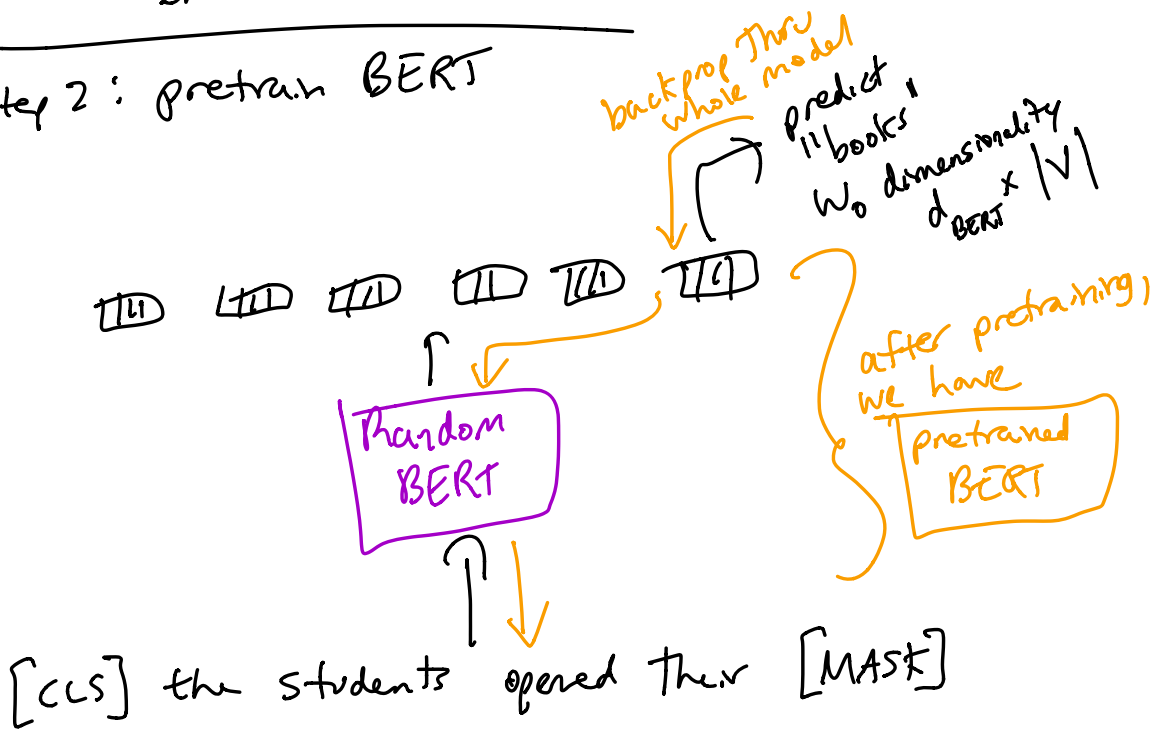 tep 2: pretrain BERT
backprop thru
whole model
predict
"books"
W₀ dimensionality
d_BERT × |V|
after pretraining,
we have
pretrained
BERT
Random
BERT
[CLS] the students opened their [MASK]